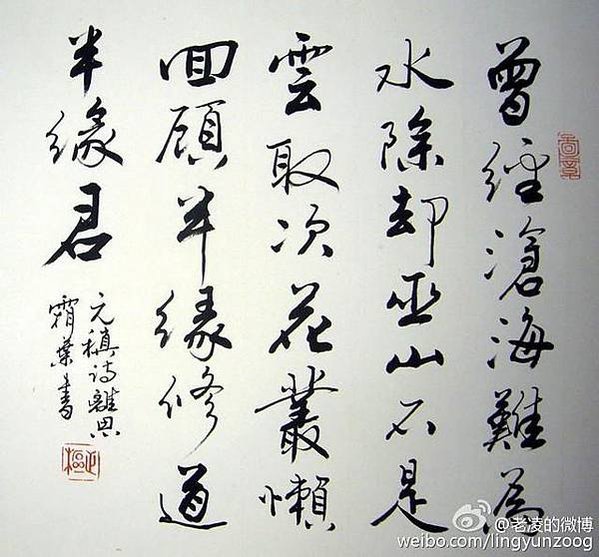 曾經滄海難為
水除却巫山不是
雲取次花叢懶
回顧半緣修道
半緣君
元稹詩離思
霜葉書
@老凌的微博
weibo.com/lingyunzoog